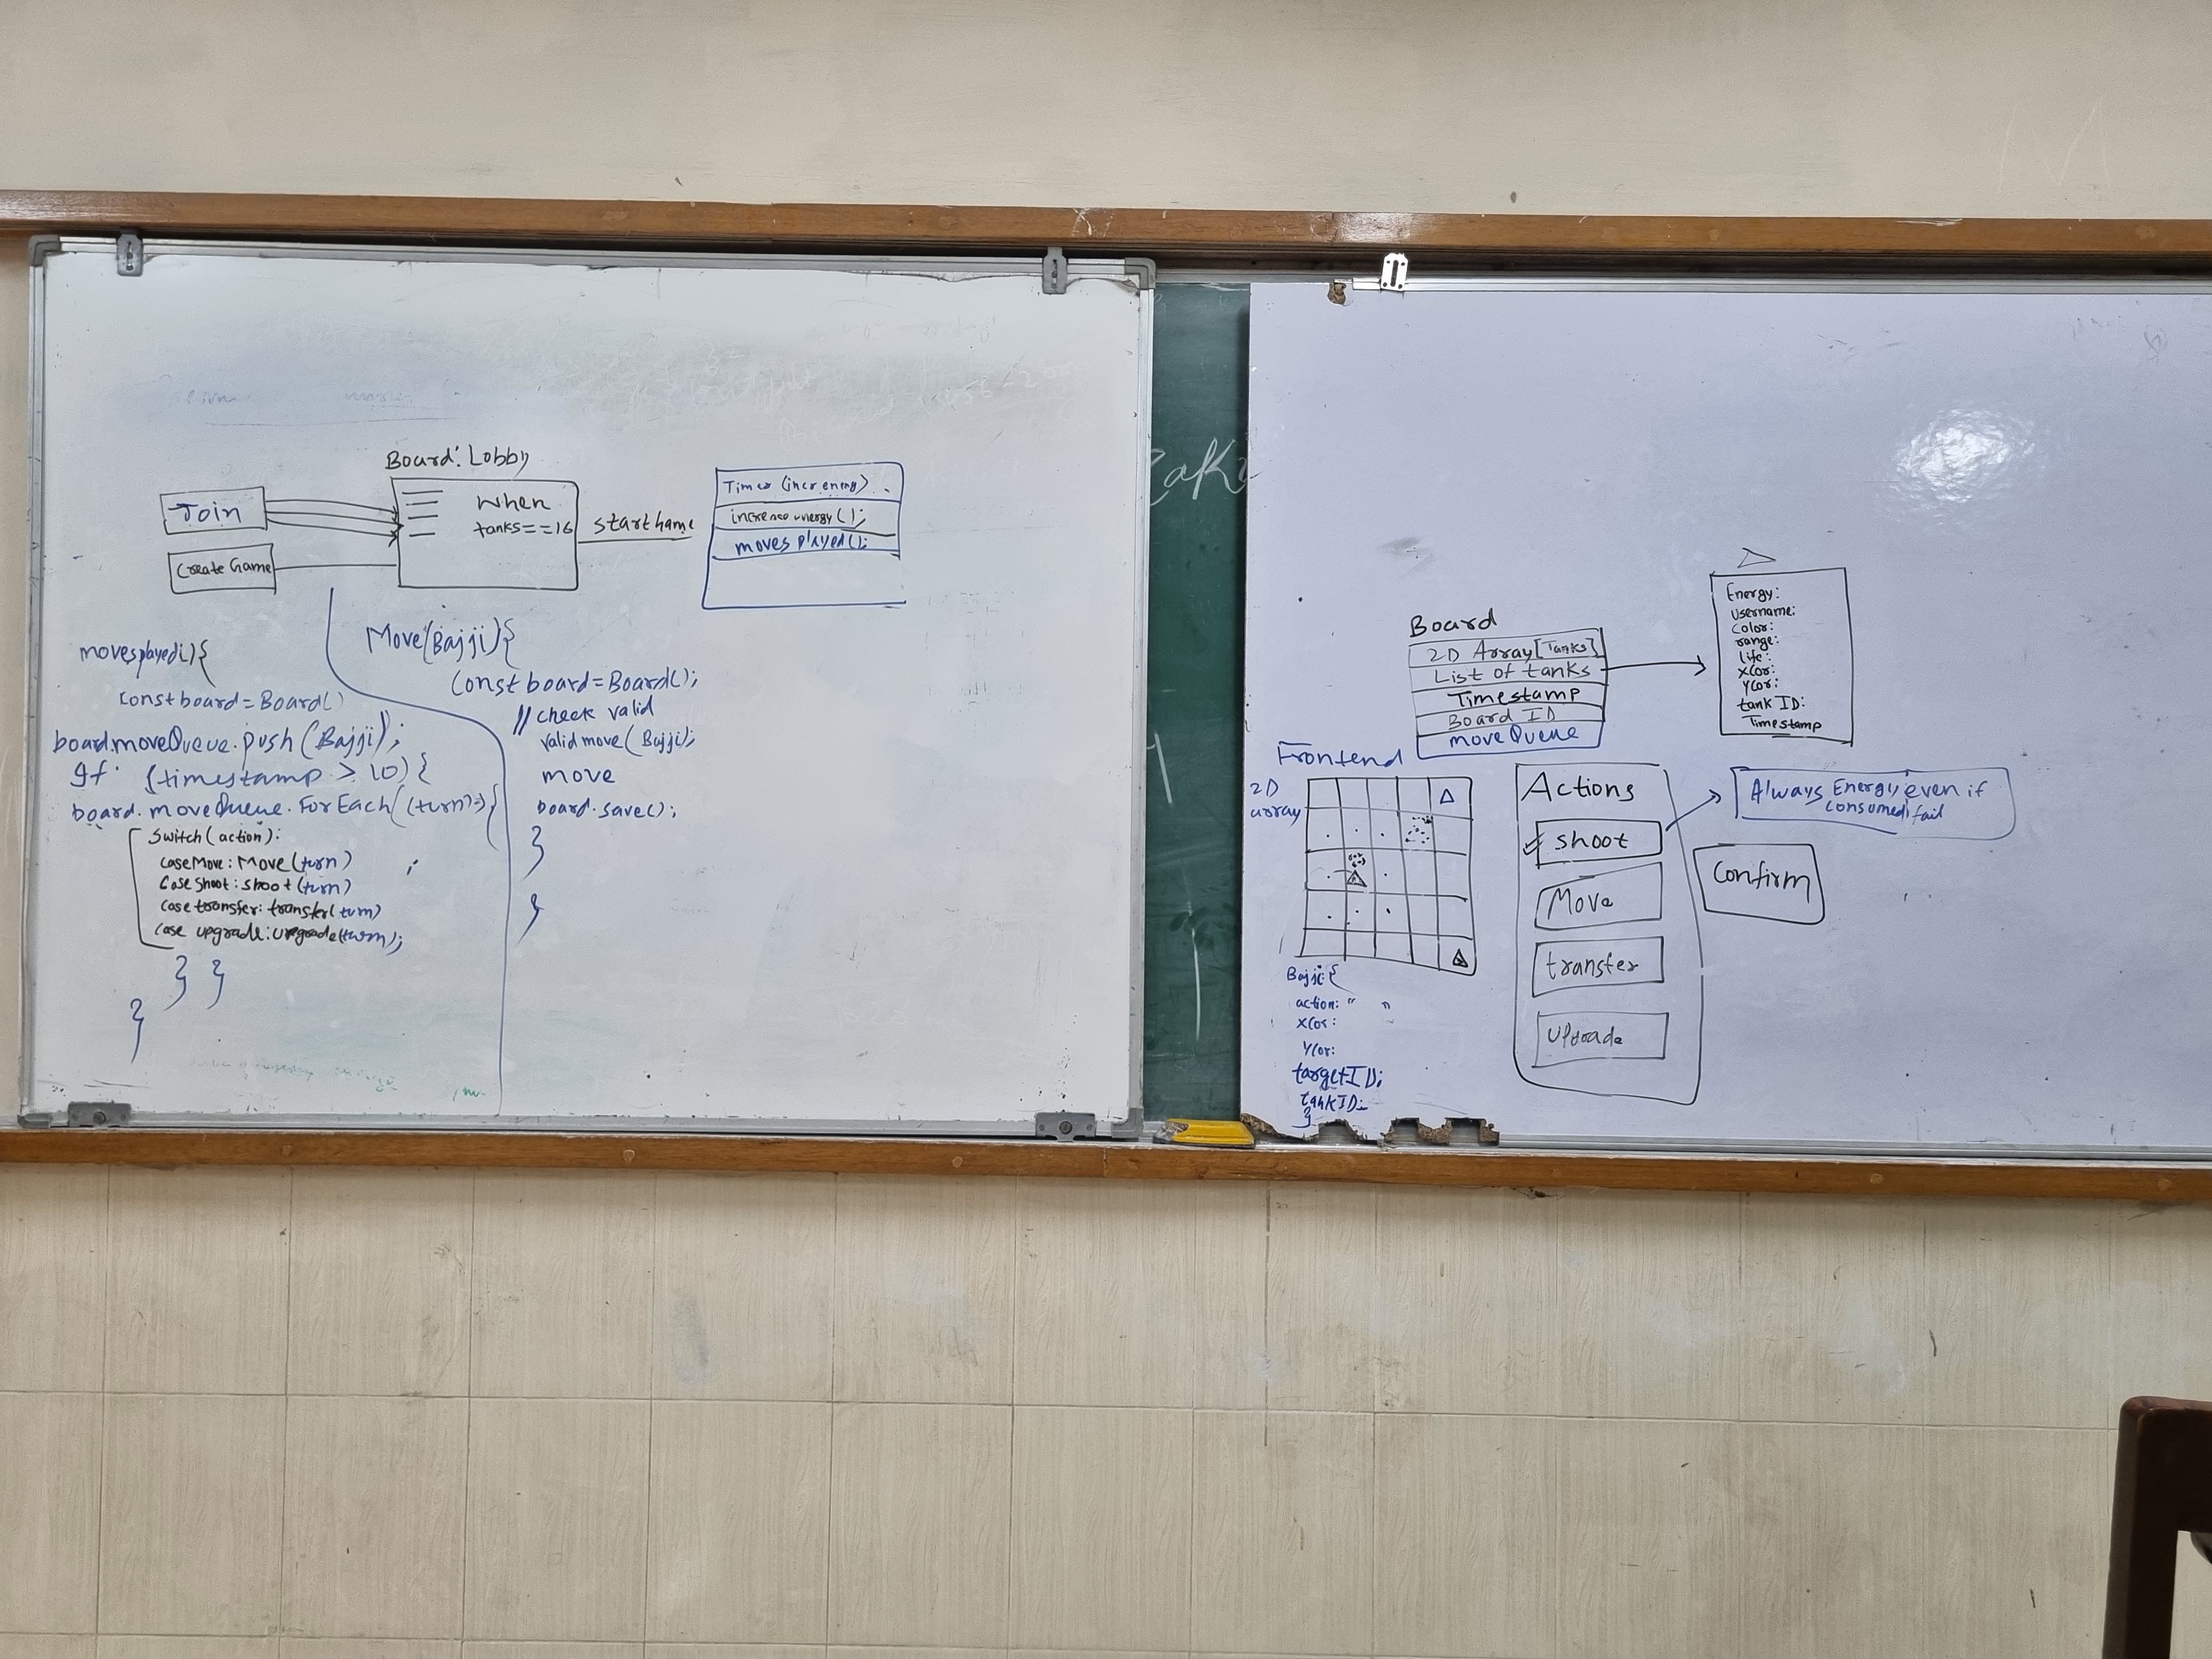 Board: Lobby
Join
Create Game
When
tanks==16
startGame
Timer (incr energy)
increase energy();
moves played();
movesplayed(){
const board = Board()
board.moveQueue.push(Bajji);
If (timestamp > 10) {
board.moveQueue.ForEach((turn)=>{
Switch(action):
Case Move: Move(turn)
Case Shoot: shoot(turn)
Case transfer: transfer(turn)
Case upgrade: upgrade(turn);
} }
}
Move(Bajji){
Const board = Board();
// check valid
validmove(Bajji);
move
board.save();
}
}
Board
2D Array[Tanks]
List of tanks
Timestamp
Board ID
moveQueue
Energy:
Username:
Color:
range:
life:
XCor:
YCor:
tank ID:
Timestamp
Frontend
2D
array
Bajji:{
action: " "
XCor:
YCor:
targetID:
tankID:
}
Actions
shoot
Move
transfer
Upgrade
Confirm
Always Energy even if
consumed fail